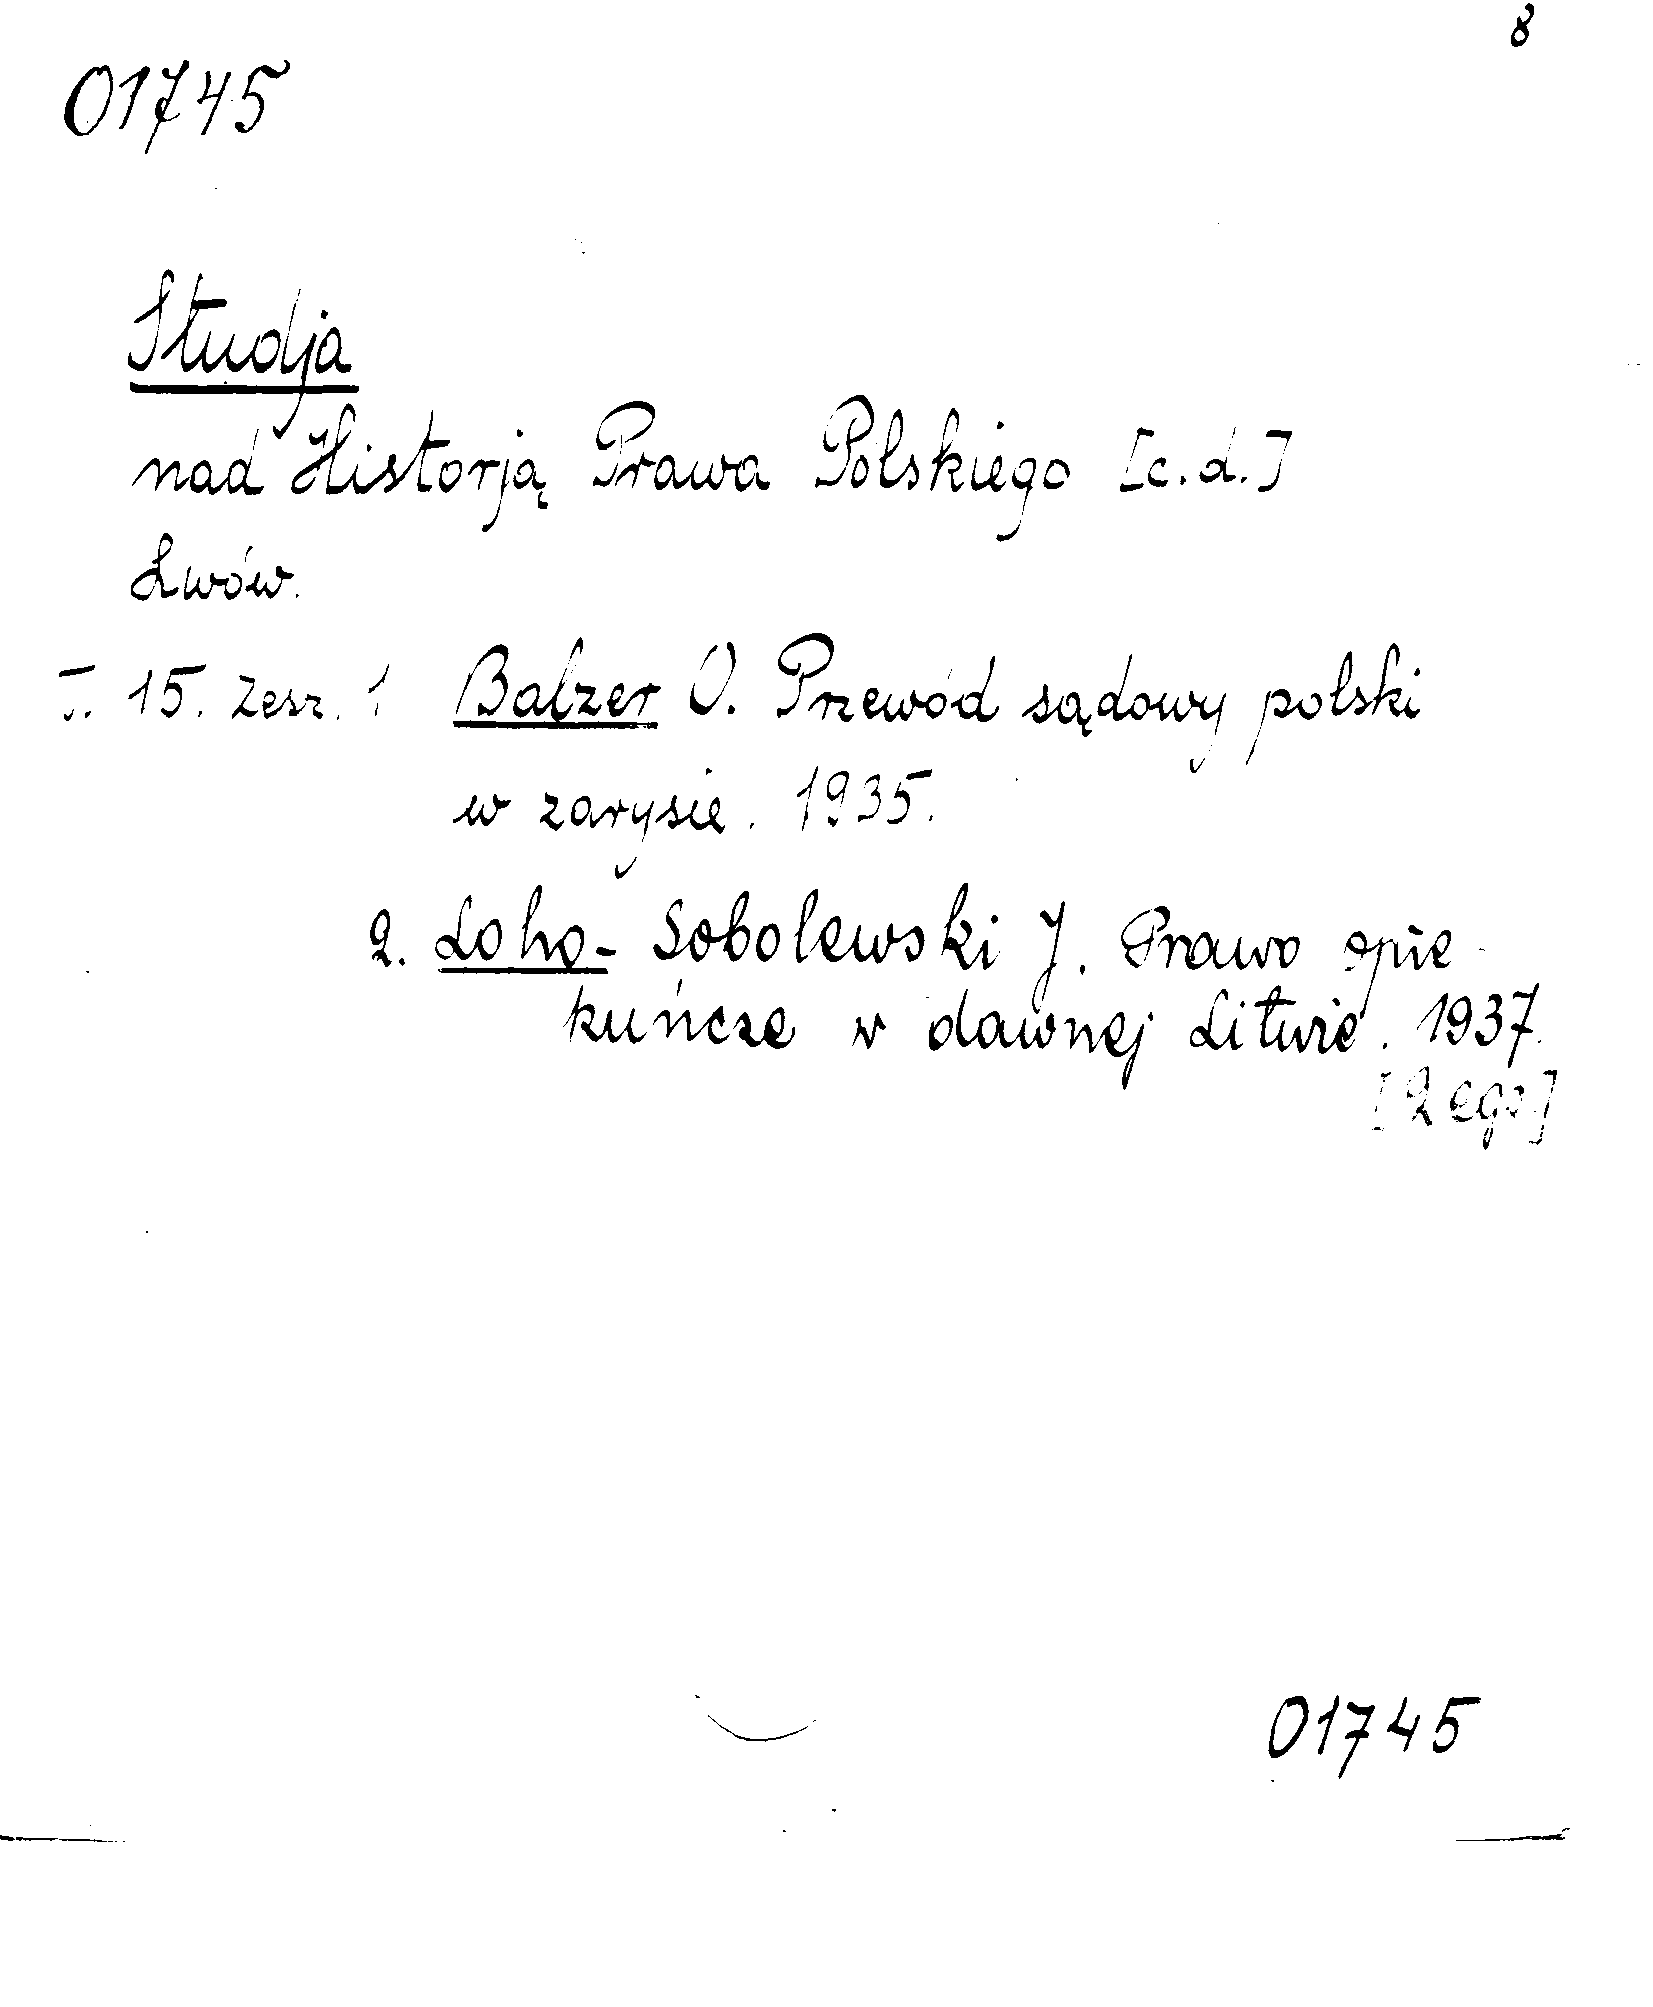 8
01745
Studja
nad Historją Prawa Polskiego [c.d.]
Lwów.
T. 15. zesz. 1 Balzer O. Przewód sądowy polski
w zarysie. 1935.
2. Loho- Sobolewski J. Prawo opie-
kuńcze w dawnej Litwie. 1937.
[2 egz.]
01745